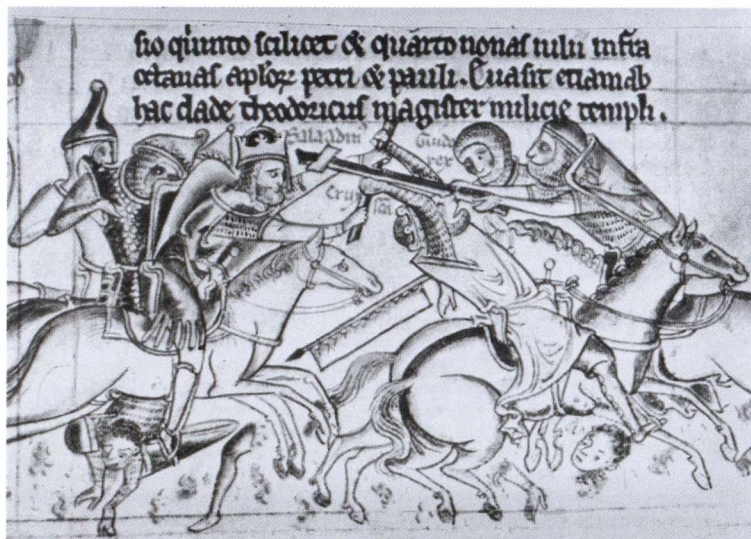 sio quinto scilicet & quarto nonas iulii infra
octauas aploꝝ petri & pauli. Euasit etiam ab
hac clade theodoricus magister milicie templi.
Saladin
Guido
rex
crux
sca